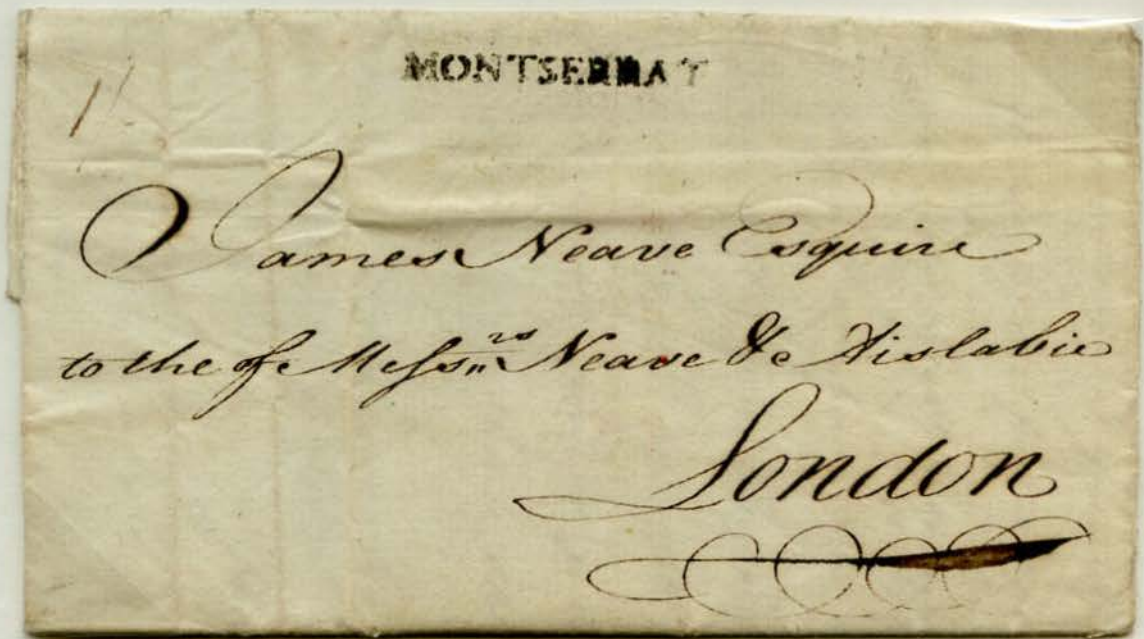 MONTSERRAT
1/
James Neave Esquire
to the of Messrs Neave & Aislabie
London